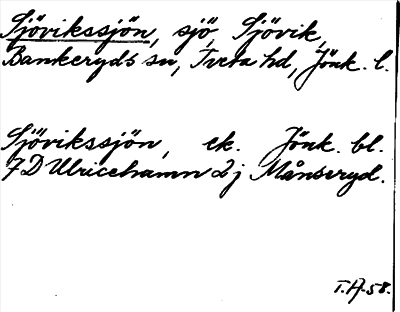 Sjövikssjön, sjö, Sjövik,
Bankeryds sn, Tveta hd, Jönk. l.
Sjövikssjön, ek. Jönk. bl.
7D Ulricehamn 2j Månseryd.
T.H. 58.